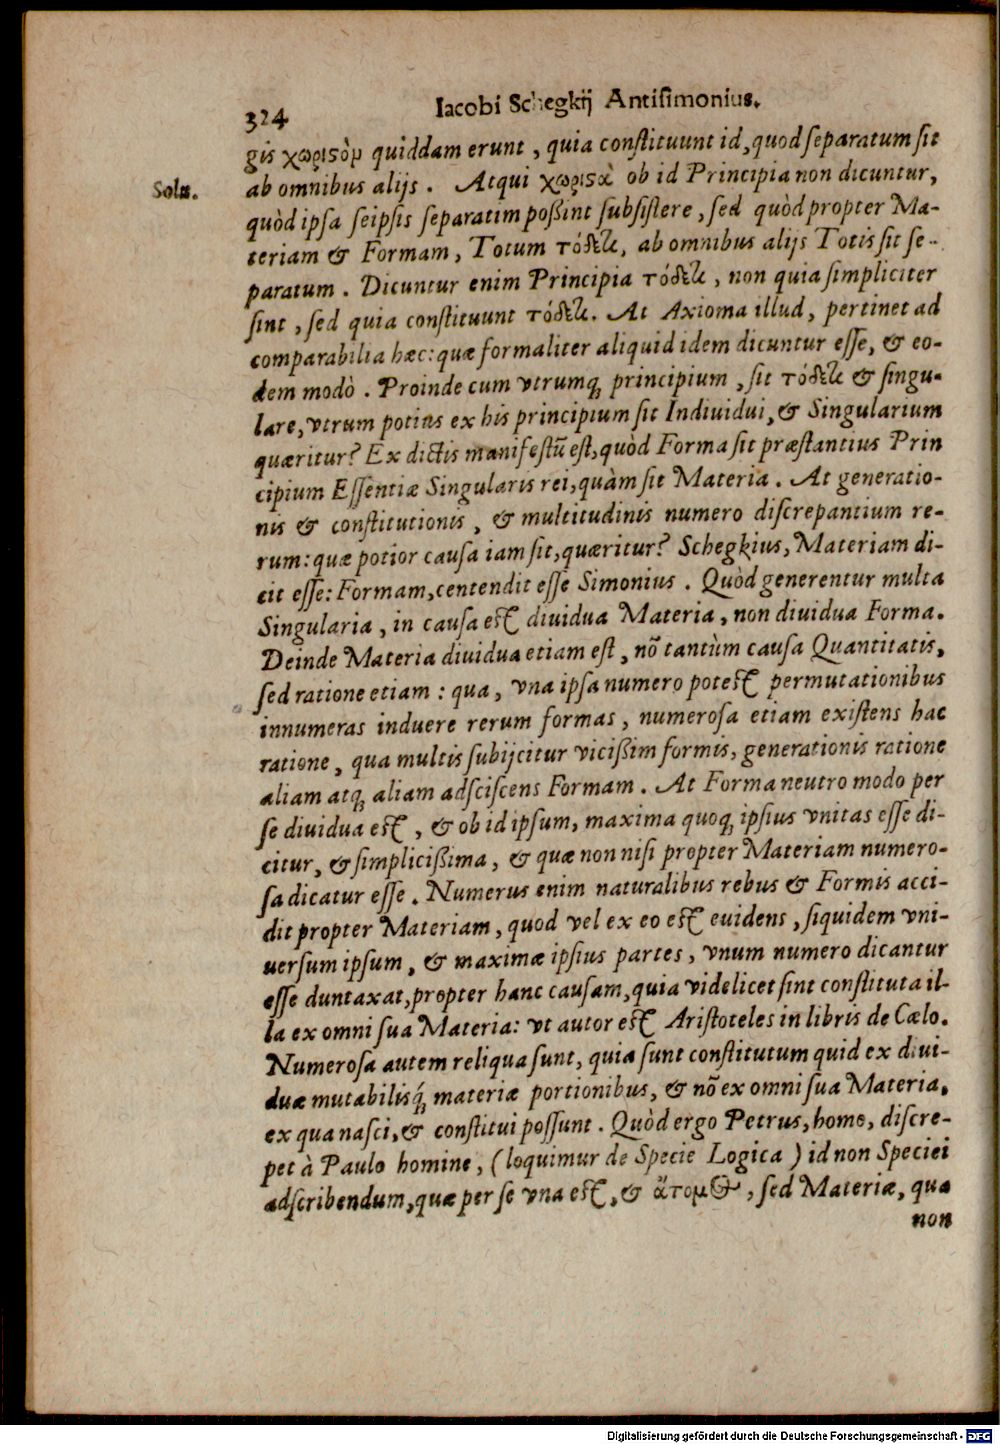 324
Iacobi Schegkij Antisimonius.
gis χωρισὸμ quiddam erunt, quia constituunt id, quod separatum sit
Solu.
ab omnibus alijs. Atqui χωρισὰ ob id Principia non dicuntur,
quòd ipsa seipsis separatim poßint subsistere, sed quòd propter Ma-
teriam & Formam, Totum τόδετι, ab omnibus alijs Totis sit se-
paratum. Dicuntur enim Principia τόδετι, non quia simpliciter
sint, sed quia constituunt τόδετι. At Axioma illud, pertinet ad
comparabilia hæc: quæ formaliter aliquid idem dicuntur esse, & eo-
dem modò. Proinde cum vtrumq; principium, sit τόδετι & singu-
lare, vtrum potius ex his principium sit Indiuidui, & Singularium
quæritur? Ex dictis manifestũ est, quòd Forma sit præstantius Prin
cipium Essentiæ Singularis rei, quàm sit Materia. At generatio-
nis & constitutionis, & multitudinis numero discrepantium re-
rum: quæ potior causa iam sit, quæritur? Schegkius, Materiam di-
cit esse: Formam, centendit esse Simonius. Quòd generentur multa
Singularia, in causa est diuidua Materia, non diuidua Forma.
Deinde Materia diuidua etiam est, nõ tantùm causa Quantitatis,
sed ratione etiam: qua, vna ipsa numero potest permutationibus
innumeras induere rerum formas, numerosa etiam existens hac
ratione, qua multis subijcitur vicißim formis, generationis ratione
aliam atq; aliam adsciscens Formam. At Forma neutro modo per
se diuidua est, & ob id ipsum, maxima quoq; ipsius vnitas esse di-
citur, & simplicißima, & quæ non nisi propter Materiam numero-
sa dicatur esse. Numerus enim naturalibus rebus & Formis acci-
dit propter Materiam, quod vel ex eo est euidens, siquidem vni-
uersum ipsum, & maximæ ipsius partes, vnum numero dicantur
esse duntaxat, propter hanc causam, quia videlicet sint constituta il-
la ex omni sua Materia: vt autor est Aristoteles in libris de Cælo.
Numerosa autem reliqua sunt, quia sunt constitutum quid ex diui-
duæ mutabilisq́; materiæ portionibus, & nõ ex omni sua Materia,
ex qua nasci, & constitui possunt. Quòd ergo Petrus, homo, discre-
pet à Paulo homine, (loquimur de Specie Logica) id non Speciei
adscribendum, quæ per se vna est, & ἄτομος, sed Materiæ, qua
non
Digitalisierung gefördert durch die Deutsche Forschungsgemeinschaft - DFG